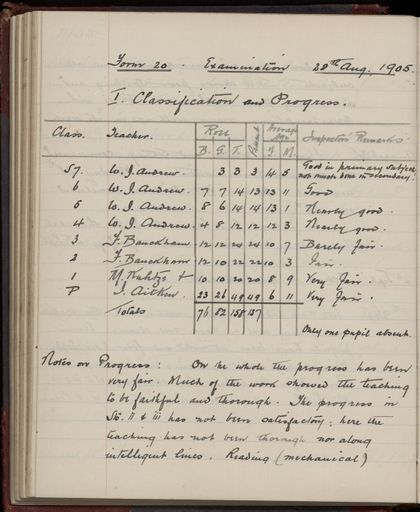 Form 20. Examination 28th Aug. 1905.
I. Classification and Progress.
Class. Teacher. Roll Present Average Age Inspectors' Remarks
B. G. T. Y M.
S7. W. J. Andrew. 3 3 3 14 5 Good in primary subjects, not much done in secondary.
6 W. J. Andrew. 7 7 14 13 13 11 Good
5 W. J. Andrew. 8 6 14 14 13 1 Nearly good.
4 W. J. Andrew. 4 8 12 12 12 3 Nearly good.
3 F. Bauckham 12 12 24 24 10 7 Barely fair.
2 F. Bauckham 12 10 22 22 10 3 Fair.
1 M. + 10 10 20 20 8 9 Very fair.
P J. Aitken. 23 26 49 49 6 11 Very fair.
Totals 76 82 158 157
Only one pupil absent.
Notes on Progress: On the whole the progress has been
very fair. Much of the work showed the teaching
to be faithful and thorough. The progress in
St. II & III has not been satisfactory; here the
teaching has not been thorough nor along
intelligent lines. Reading (mechanical)